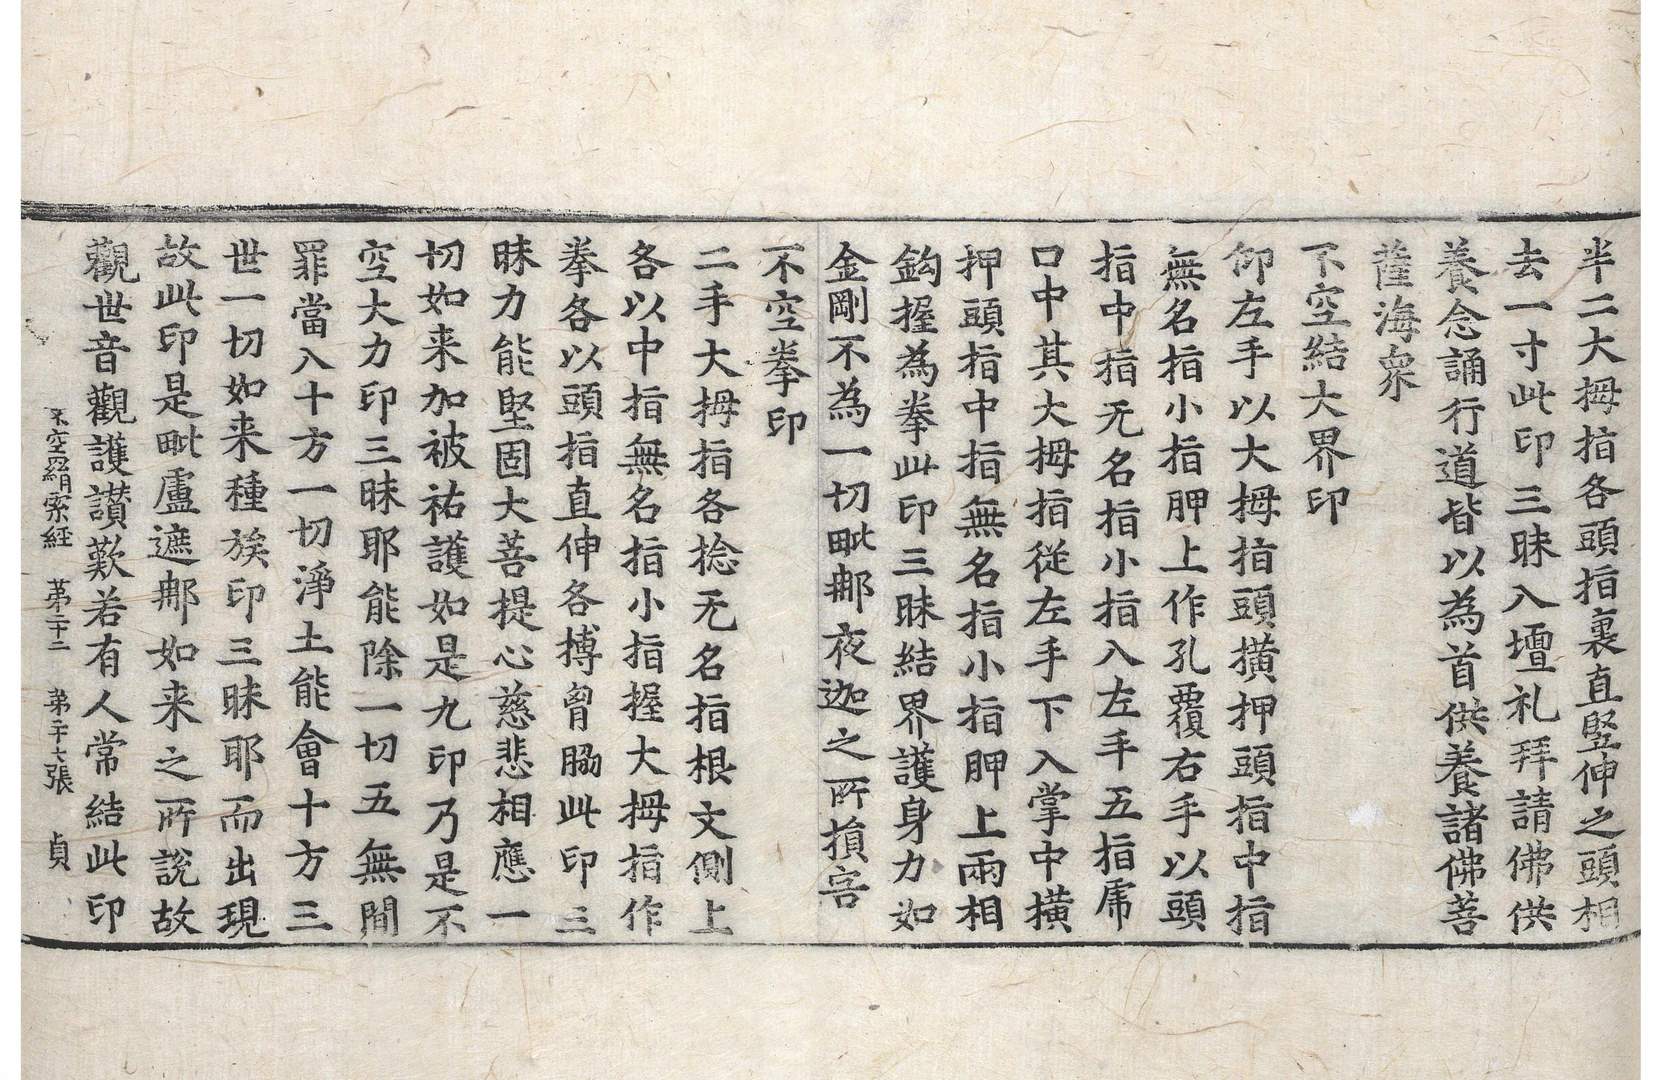 半二大拇指各頭指裏直竪伸之頭相
去一寸此印三昧入壇礼拜請佛供
養念誦行道皆以為首供養諸佛菩
薩海衆
不空結大界印
仰左手以大拇指頭橫押頭指中指
無名指小指胛上作孔覆右手以頭
指中指无名指小指入左手五指席
口中其大拇指從左手下入掌中橫
押頭指中指無名指小指胛上兩相
鈎握為拳此印三昧結界護身力如
金剛不為一切毗那夜迦之所損害
不空拳印
二手大拇指各捻无名指根文側上
各以中指無名指小指握大拇指作
拳各以頭指直伸各搏胷脇此印三
昧力能堅固大菩提心慈悲相應一
切如来加被祐護如是九印乃是不
空大力印三昧耶能除一切五無間
罪當入十方一切淨土能會十方三
世一切如来種族印三昧耶而出現
故此印是毗盧遮那如来之所說故
觀世音觀護讃歎若有人常結此印
不空羂索經 苐二十二 苐二十七張 貞